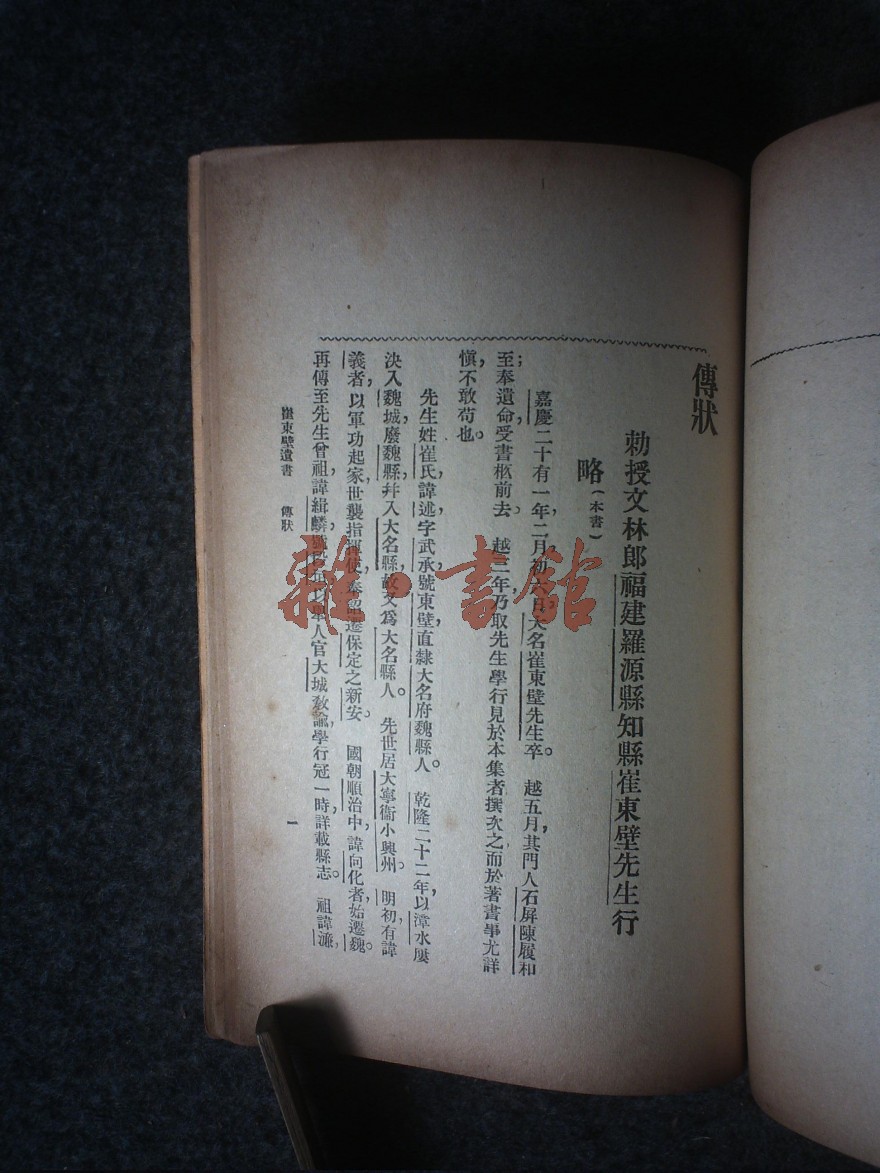 傳狀
勅授文林郎福建羅源縣知縣崔東壁先生行
略(本書)
嘉慶二十有一年,二月初六日,大名崔東壁先生卒。越五月,其門人石屏陳履和
至;奉遺命受書柩前去。越二年,乃取先生學行見於本集者撰次之,而於著書事尤詳
愼,不敢苟也。
先生姓崔氏,諱述,字武承,號東壁,直隸大名府魏縣人。乾隆二十二年,以漳水屢
決入魏城,廢魏縣,幷入大名縣,故又爲大名縣人。先世居大寧衞小興州。明初,有諱
義者,以軍功起家,世襲指揮使,奉詔遷保定之新安。國朝順治中,諱向化者始遷魏。
再傳至先生曾祖,諱緝麟,號人官大城敎諭,學行冠一時,詳載縣志。祖諱濂,
崔東壁遺書 傳狀
一
雜·書館